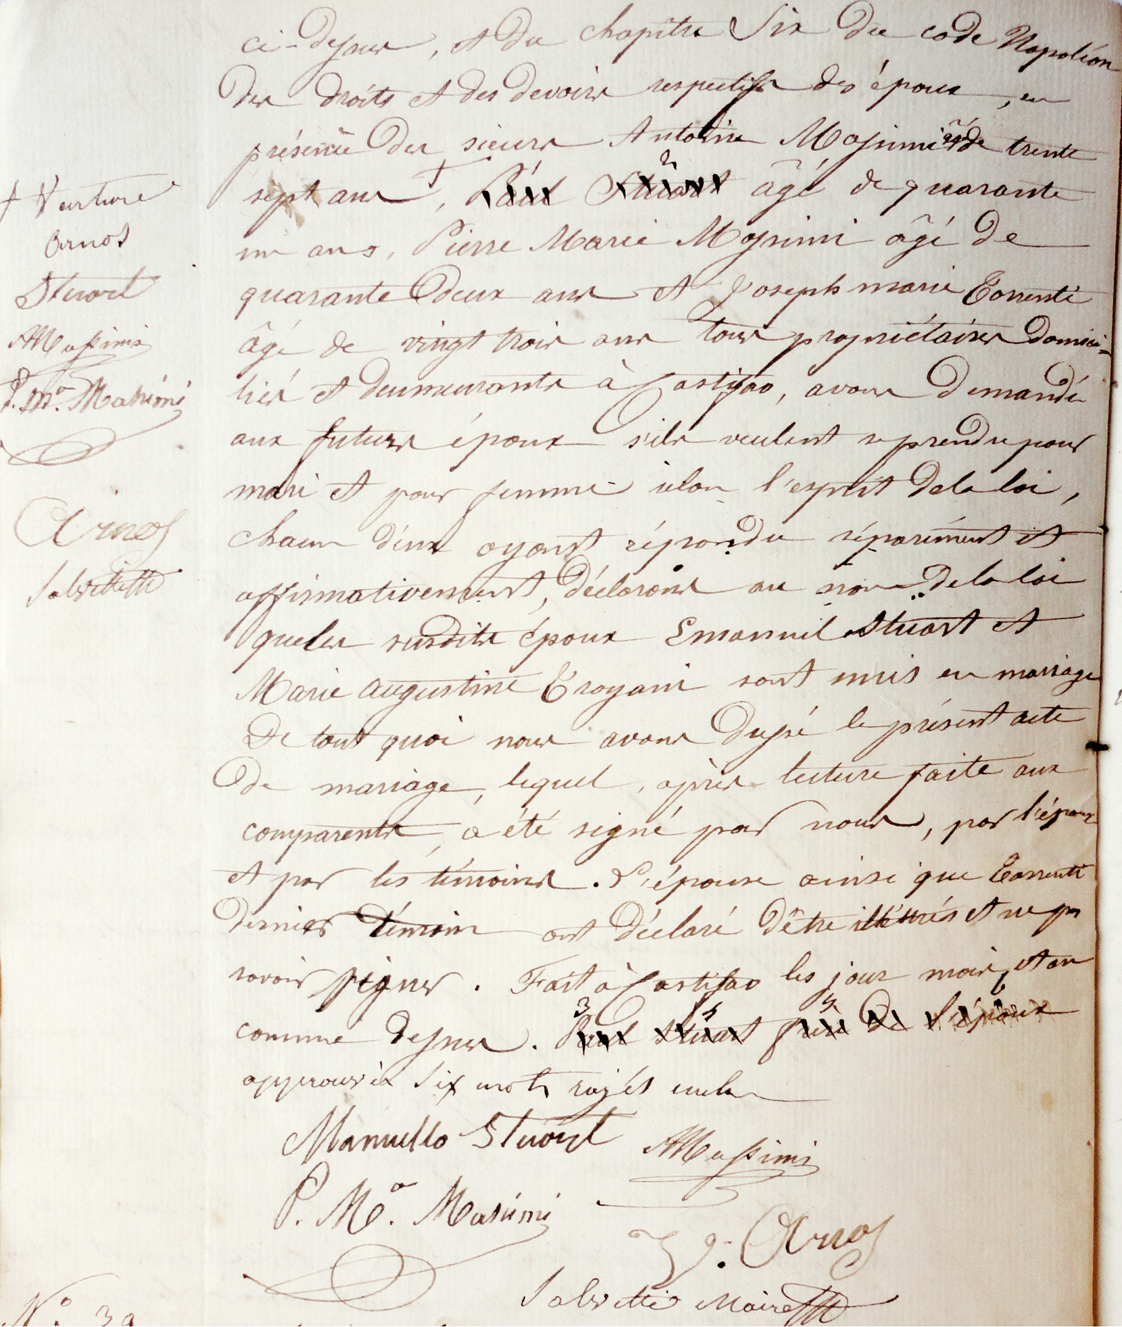 ci-dessus, et du chapitre Six du code Napoléon
Des droits et des devoirs respectifs des époux, en
présence des sieurs Antoine Massimi âgé de trente
sept ans †, Paul Stuart âgé de quarante
un ans, Pierre Marie Massimi âgé de
quarante deux ans et Joseph marie Torrenti
âgé de vingt trois ans tous propriétaires domici-
liés et demeurants à Castifao, avons demandé
aux futurs époux s'ils veulent se prendre pour
mari et pour femme selon l'esprit de la loi,
chacun d'eux ayant répondu séparément et
affirmativement, déclarons au nom de la loi
que les susdits époux Emanuel Stuart et
Marie Augustine Troyani sont unis en mariage
De tout quoi nous avons dressé le présent acte
de mariage, lequel, après lecture faite aux
comparents, a été signé par nous, par l'époux
et par les témoins. L'épouse ainsi que Torrenti
dernier témoin ont déclaré d'être illettrés et ne pas
savoir signer. Fait à Castifao les jour mois et an
comme dessus. Paul Stuart frère de l'époux
approuvés Six mots rayés nuls
Manuello Stuart
AMassimi
P. Ma. Massimi
Arnos
Salvetti Maire
† Venture
Arnos
Stuart
AMassimi
P. Ma. Massimi
Arnos
Salvetti
No. 39